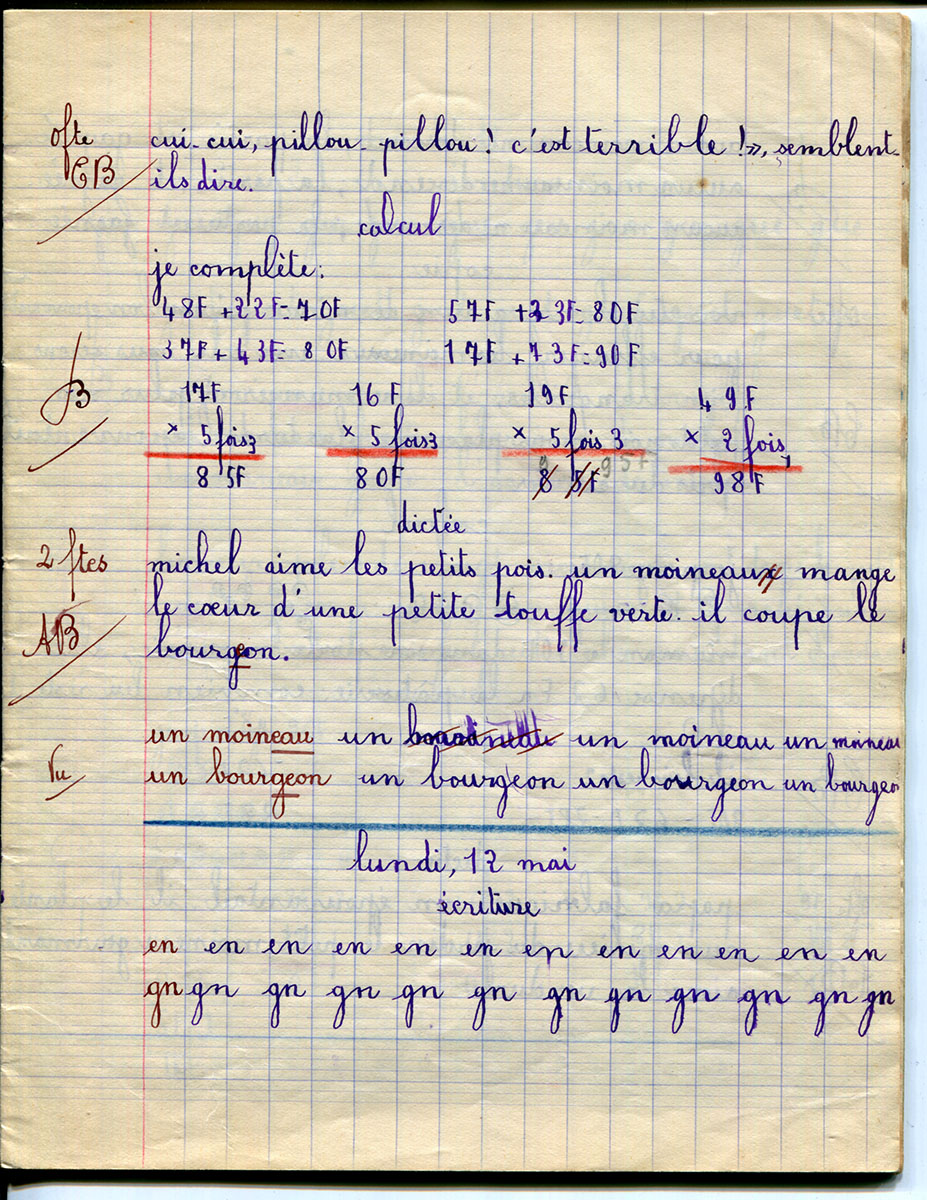 0fte cui-cui, pillou-pillou! c'est terrible!», semblent-
TB ils dire.
calcul
je complète:
48F + 22F = 70F 57F + 23F = 80F
37F + 43F = 80F 17F + 73F = 90F
B 17F 16F 19F 49F
× 5 fois 3 × 5 fois 3 × 5 fois 3 × 2 fois 1
85F 80F 85F 95F 98F
dictée
2 ftes michel aime les petits pois. un moineaux mange
le cœur d'une petite touffe verte. il coupe le
AB bourgeon.
un moineau un un moineau un moineau
Vu un bourgeon un bourgeon un bourgeon un bourgeon
lundi, 12 mai
écriture
en en en en en en en en en en en en
gn gn gn gn gn gn gn gn gn gn gn gn